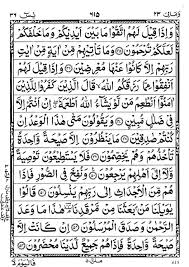 وَمَالِیَ ٢٣ ٤١٥ يٰسٓ ٣٦
وَإِذَا قِيلَ لَهُمُ اتَّقُوْا مَا بَيْنَ أَيْدِيْكُمْ وَمَا خَلْفَكُمْ
لَعَلَّكُمْ تُرْحَمُوْنَ ۝ وَمَا تَأْتِيْهِمْ مِّنْ اٰيَةٍ مِّنْ اٰيٰتِ
رَبِّهِمْ إِلَّا كَانُوْا عَنْهَا مُعْرِضِيْنَ ۝ وَإِذَا قِيْلَ لَهُمْ
أَنْفِقُوْا مِمَّا رَزَقَكُمُ اللّٰهُ قَالَ الَّذِيْنَ كَفَرُوْا لِلَّذِيْنَ
اٰمَنُوْا أَنُطْعِمُ مَنْ لَّوْ يَشَآءُ اللّٰهُ أَطْعَمَهٗ إِنْ أَنْتُمْ إِلَّا
فِيْ ضَلٰلٍ مُّبِيْنٍ ۝ وَيَقُوْلُوْنَ مَتٰى هٰذَا الْوَعْدُ إِنْ
كُنْتُمْ صٰدِقِيْنَ ۝ مَا يَنْظُرُوْنَ إِلَّا صَيْحَةً وَّاحِدَةً
تَأْخُذُهُمْ وَهُمْ يَخِصِّمُوْنَ ۝ فَلَا يَسْتَطِيْعُوْنَ تَوْصِيَةً
وَّلَآ إِلٰٓى أَهْلِهِمْ يَرْجِعُوْنَ ۝ وَنُفِخَ فِي الصُّوْرِ فَإِذَا
هُمْ مِّنَ الْأَجْدَاثِ إِلٰى رَبِّهِمْ يَنْسِلُوْنَ ۝ قَالُوْا
يٰوَيْلَنَا مَنْ بَعَثَنَا مِنْ مَّرْقَدِنَا هٰذَا مَا وَعَدَ
الرَّحْمٰنُ وَصَدَقَ الْمُرْسَلُوْنَ ۝ إِنْ كَانَتْ إِلَّا
صَيْحَةً وَّاحِدَةً فَإِذَا هُمْ جَمِيْعٌ لَّدَيْنَا مُحْضَرُوْنَ ۝